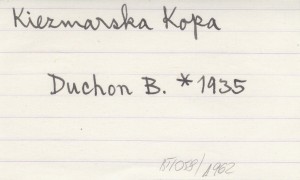 Kiezmarska Kopa
Duchon B. * 1935
/1962